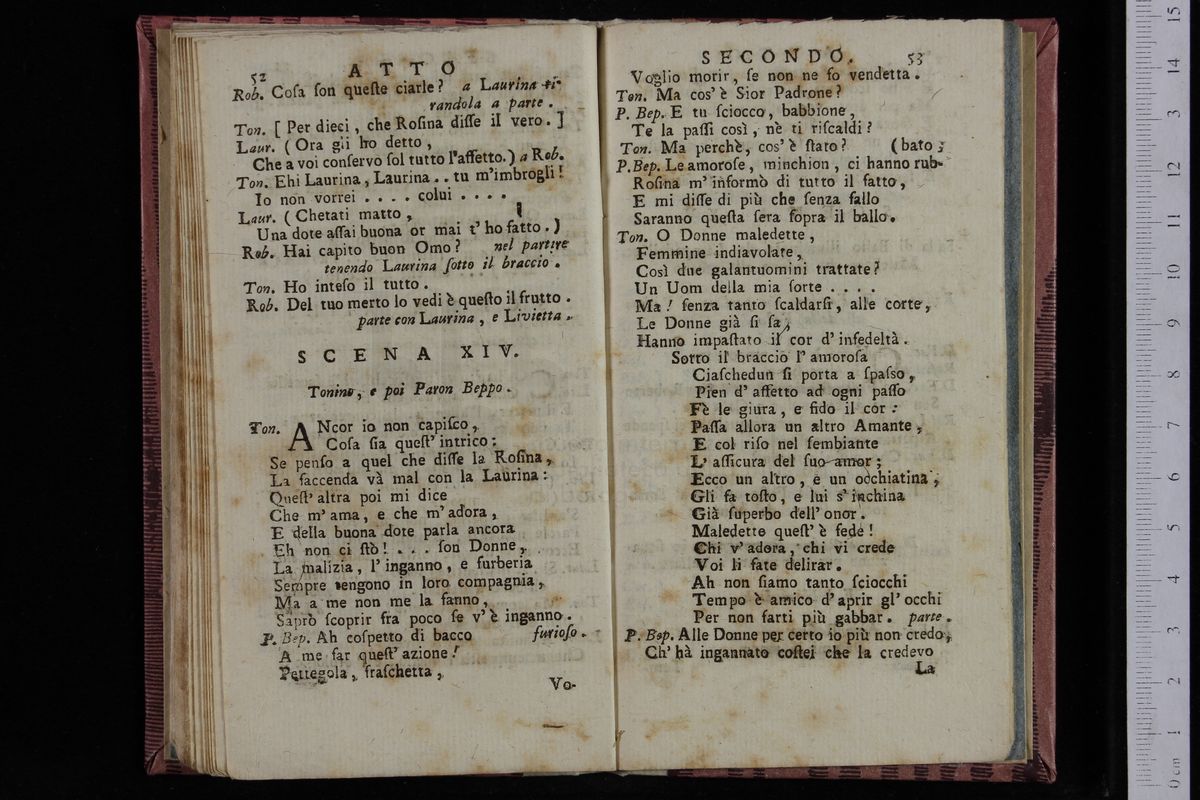 52 ATTO
Rob. Coſa ſon queſte ciarle? a Laurina ti-
randola a parte.
Ton. [ Per dieci, che Roſina diſſe il vero. ]
Laur. ( Ora gli ho detto,
Che a voi conſervo ſol tutto l'affetto. ) a Rob.
Ton. Ehi Laurina, Laurina.. tu m'imbrogli!
Io non vorrei .... colui ....
Laur. ( Chetati matto,
Una dote aſſai buona or mai t'ho fatto. )
Rob. Hai capito buon Omo? nel partire
tenendo Laurina ſotto il braccio.
Ton. Ho inteſo il tutto.
Rob. Del tuo merto lo vedi è queſto il frutto.
parte con Laurina, e Livietta.
SCENA XIV.
Tonino, e poi Paron Beppo.
Ton. ANcor io non capiſco,
Coſa ſia queſt' intrico:
Se penſo a quel che diſſe la Roſina,
La faccenda và mal con la Laurina:
Queſt' altra poi mi dice
Che m'ama, e che m'adora,
E della buona dote parla ancora
Eh non ci ſtò! ... ſon Donne,
La malizia, l'inganno, e furberia
Sempre tengono in loro compagnia,
Ma a me non me la fanno,
Saprò ſcoprir fra poco ſe v'è inganno.
P. Bep. Ah coſpetto di bacco furioſo.
A me far queſt' azione!
Pettegola, fraſchetta,
Vo-
SECONDO. 53
Voglio morir, ſe non ne fo vendetta.
Ton. Ma cos' è Sior Padrone?
P. Bep. E tu ſciocco, babbione,
Te la paſſi così, nè ti riſcaldi?
Ton. Ma perchè, cos' è ſtato? (bato;
P. Bep. Le amoroſe, minchion, ci hanno rub-
Roſina m' informò di tutto il fatto,
E mi diſſe di più che ſenza fallo
Saranno queſta ſera ſopra il ballo.
Ton. O Donne maledette,
Femmine indiavolate,
Così due galantuomini trattate?
Un Uom della mia ſorte ....
Ma! ſenza tanto ſcaldarſi, alle corte,
Le Donne già ſi ſa,
Hanno impaſtato il cor d' infedeltà.
Sotto il braccio l' amoroſa
Ciaſchedun ſi porta a ſpaſso,
Pien d' affetto ad ogni paſſo
Fè le giura, e fido il cor:
Paſſa allora un altro Amante,
E col riſo nel ſembiante
L' aſſicura del ſuo amor;
Ecco un altro, e un occhiatina,
Gli fa toſto, e lui s' inchina
Già ſuperbo dell' onor.
Maledette queſt' è fede!
Chi v' adora, chi vi crede
Voi li fate delirar.
Ah non ſiamo tanto ſciocchi
Tempo è amico d' aprir gl' occhi
Per non farti più gabbar. parte.
P. Bep. Alle Donne per certo io più non credo,
Ch' hà ingannato coſtei che la credevo
La
0 cm 1 2 3 4 5 6 7 8 9 10 11 12 13 14 15